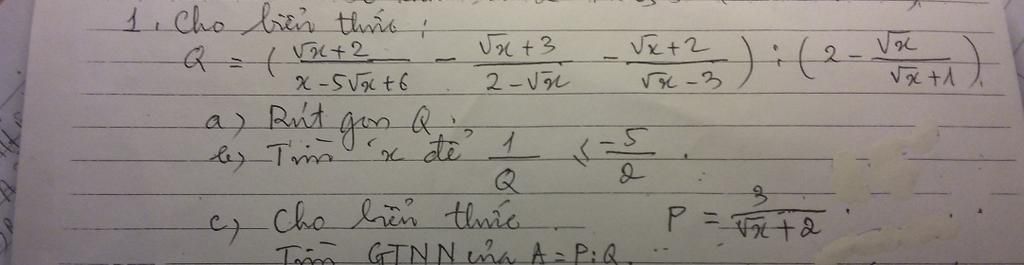 1. Cho biển thức:
Q = (√x+2 / x-5√x+6 - √x+3 / 2-√x - √x+2 / √x-3) : (2 - √x / √x+1).
a) Rút gọn Q.
b) Tìm x để 1/Q ≤ -5/2.
c) Cho biển thức P = 3 / √x+2.
Tìm GTNN của A = P:Q.